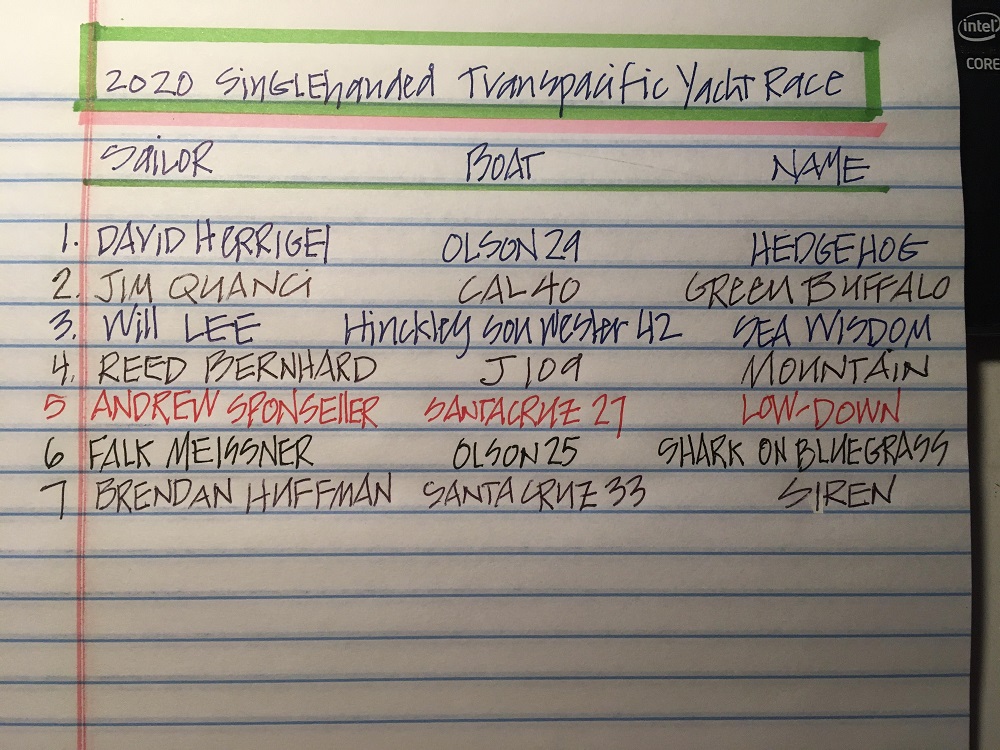 intel
CORE
2020 SINGLEhanded Transpacific Yacht Race
SAILOR BOAT NAME
1. DAVID HERRIGEl OLSON 29 HEDGEHOG
2. JIM QUANCI CAL 40 GREEN BUFFALO
3. Will LEE Hinckley Sou Wester 42 SEA WISDOM
4. REED BERNHARD J 109 MOUNTAIN
5 ANDREW SPONSEller SANTACRUZ 27 LOW-DOWN
6 FALK MEISSNER OLSON 25 SHARK ON BLUEGRASS
7 BRENDAN HUFFMAN SANTA CRUZ 33 SIREN